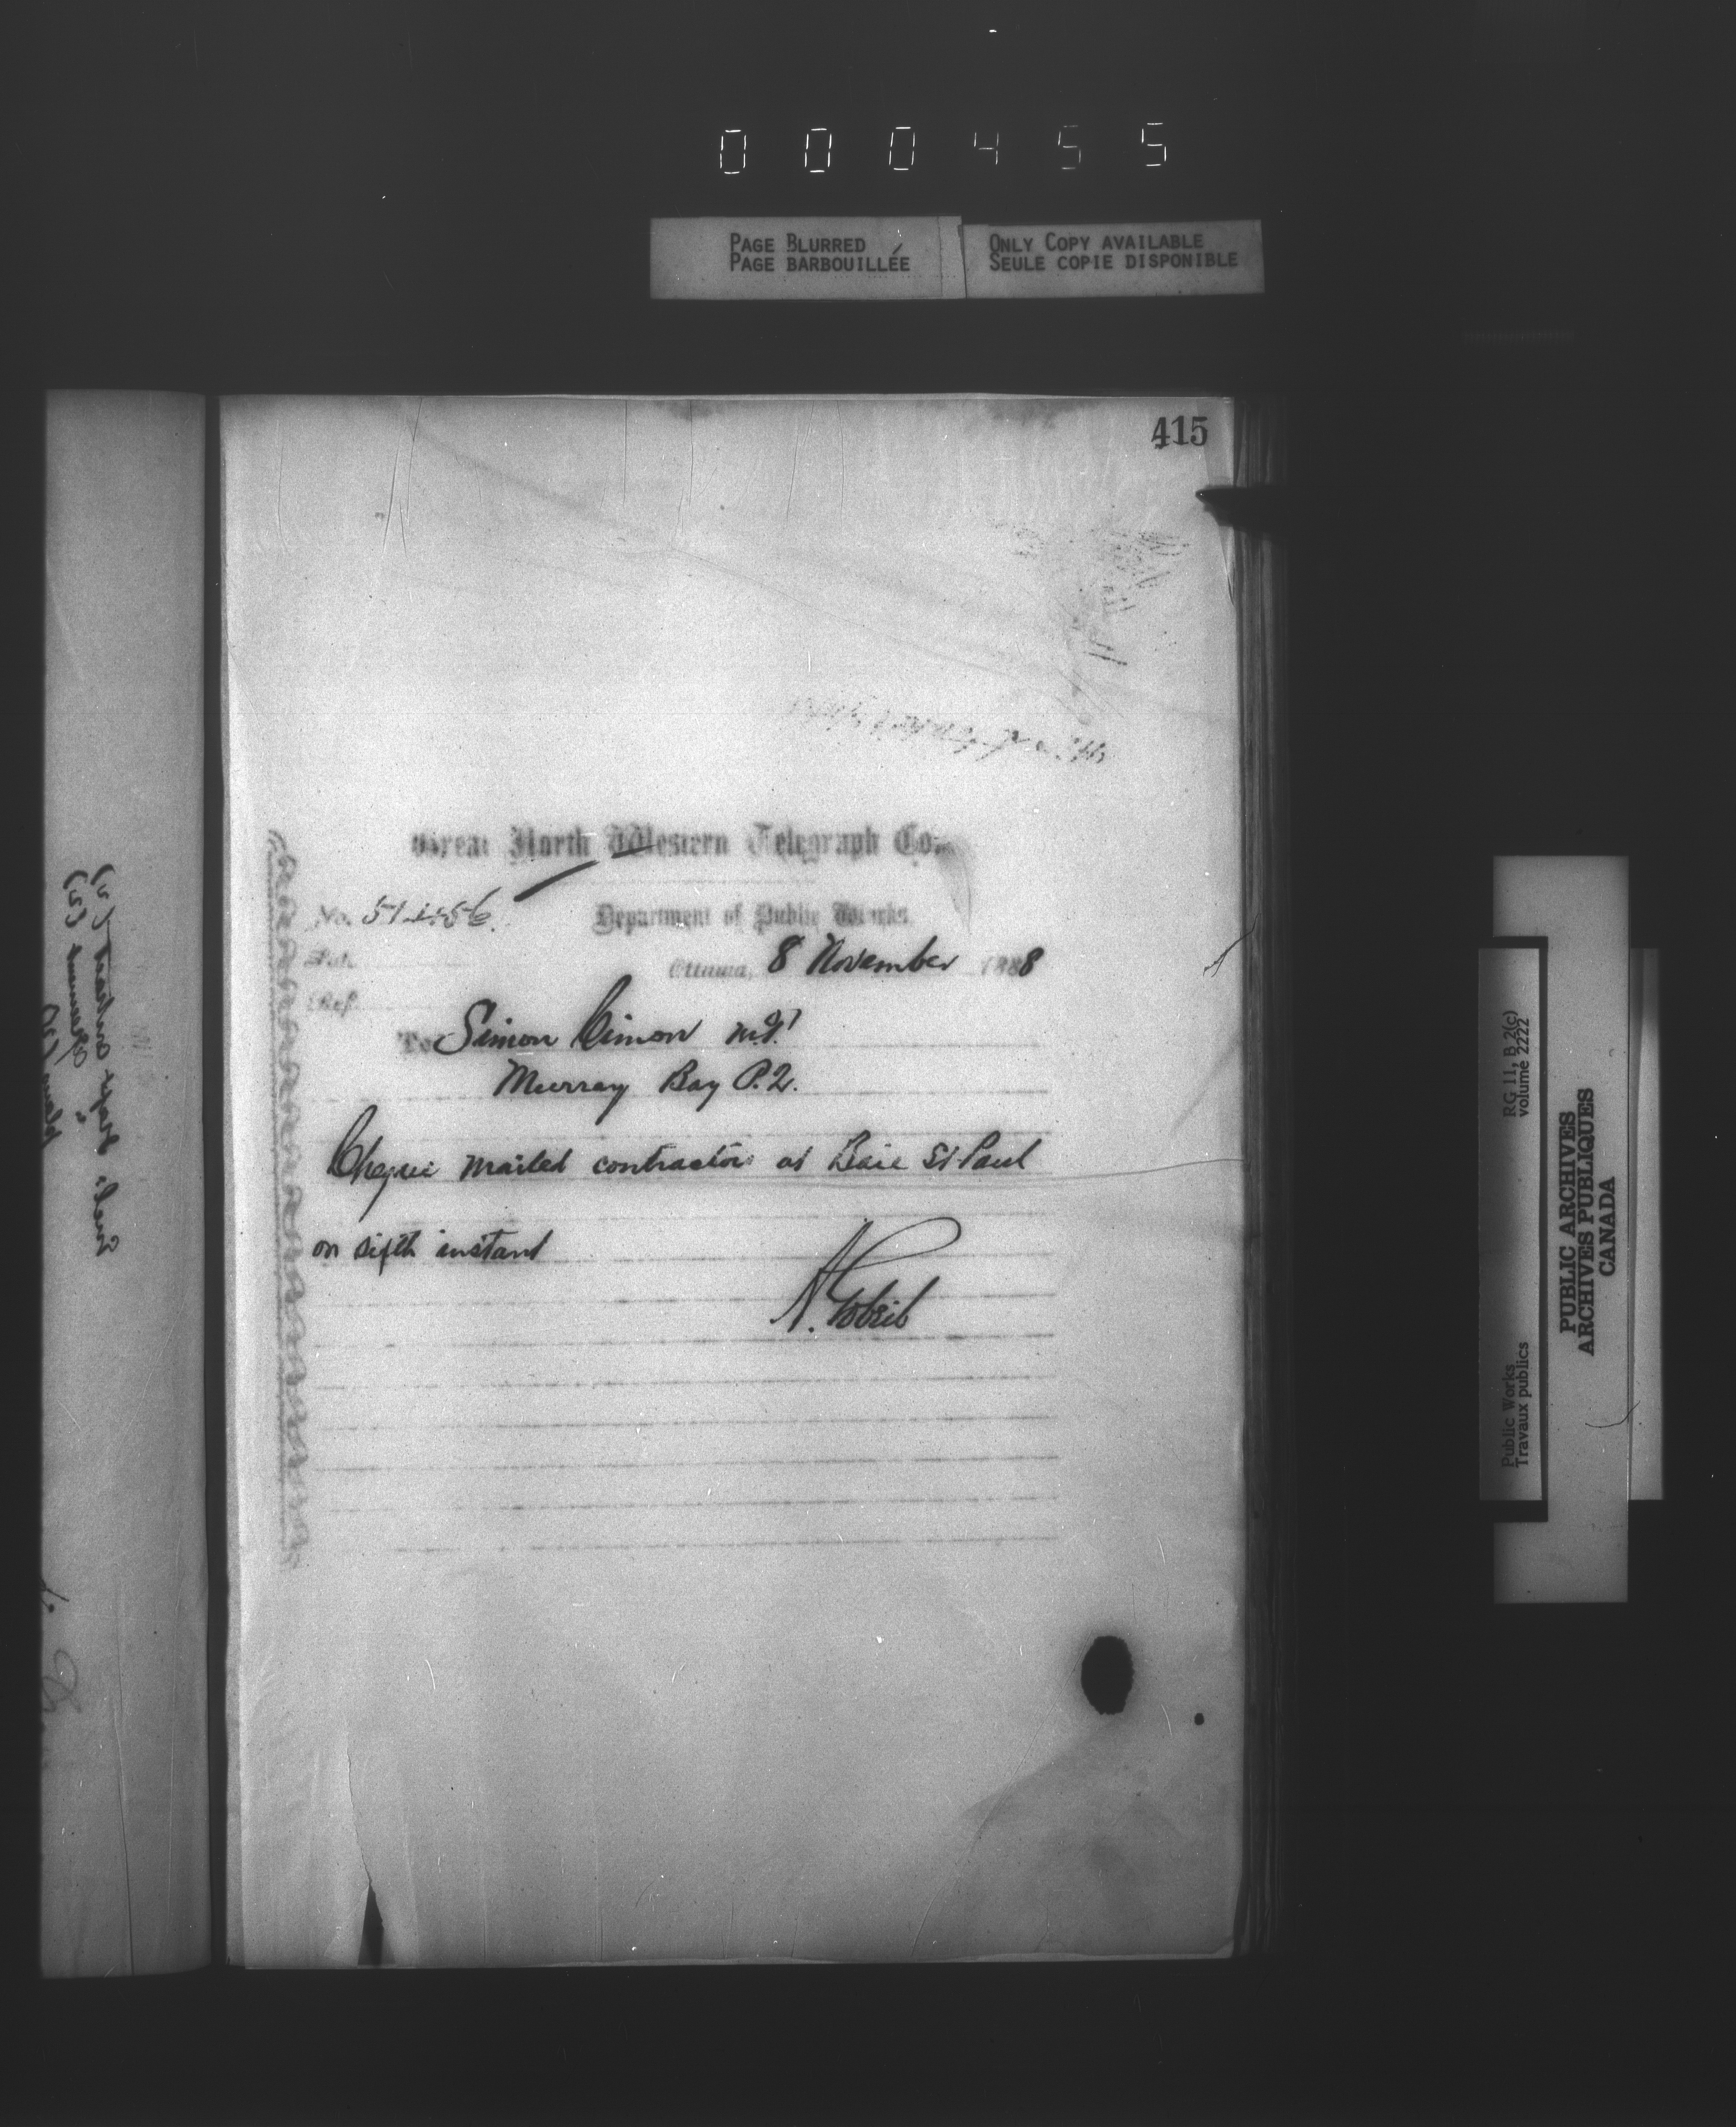 000455
PAGE BLURRED
PAGE BARBOUILLÉE
ONLY COPY AVAILABLE
SEULE COPIE DISPONIBLE
415
Great North Western Telegraph Co.
No.
Department of Public Works
Ottawa, 8 November 1888
Ref.
To Simon Cimon M.P.
Murray Bay P.Q.
Cheque mailed contractors at Baie St Paul
on sixth instant
A. Gobeil
Public Works
Travaux publics
RG 11, B 2(c)
volume 2222
PUBLIC ARCHIVES
ARCHIVES PUBLIQUES
CANADA